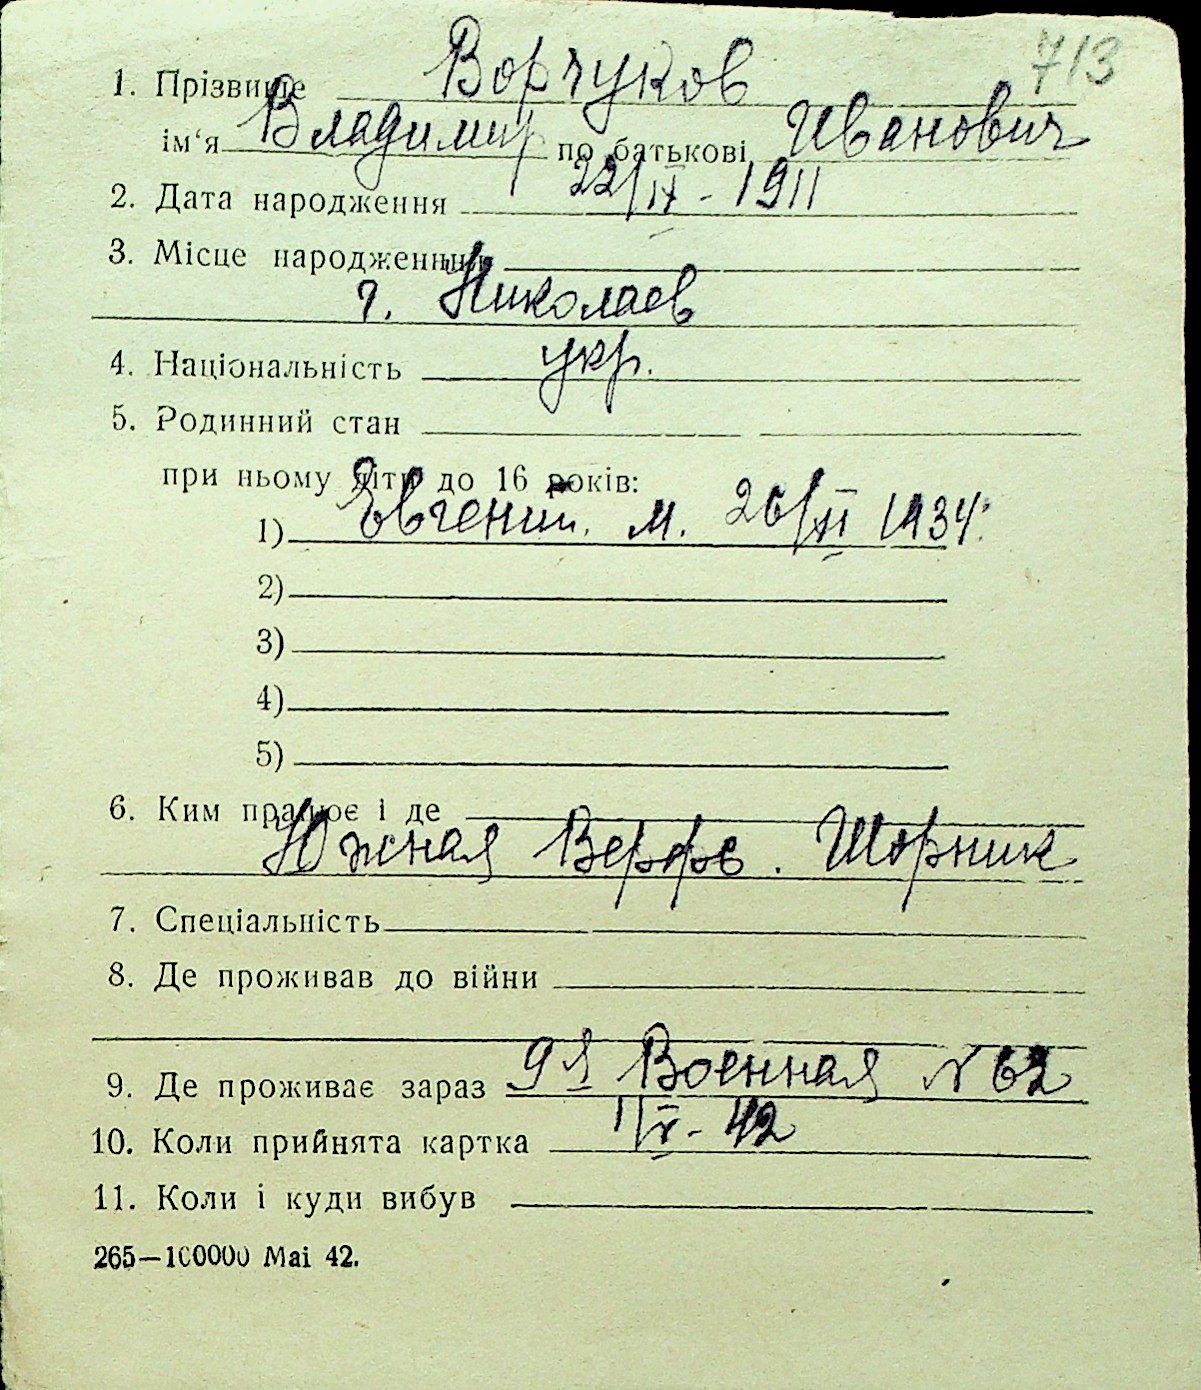 713
1. Прізвище Ворчуков
ім'я Владимир по батькові Иванович
2. Дата народження 22/IX - 1911
3. Місце народження
г. Николаев
4. Національність укр.
5. Родинний стан
при ньому діти до 16 років:
1) Евгений. м. 26/XI 1934.
2)
3)
4)
5)
6. Ким працює і де
Южная Верфь. Шорник
7. Спеціальність
8. Де проживав до війни
9. Де проживає зараз 9я Военная N 62
10. Коли прийнята картка 1/V - 42
11. Коли і куди вибув
265—100000 Mai 42.